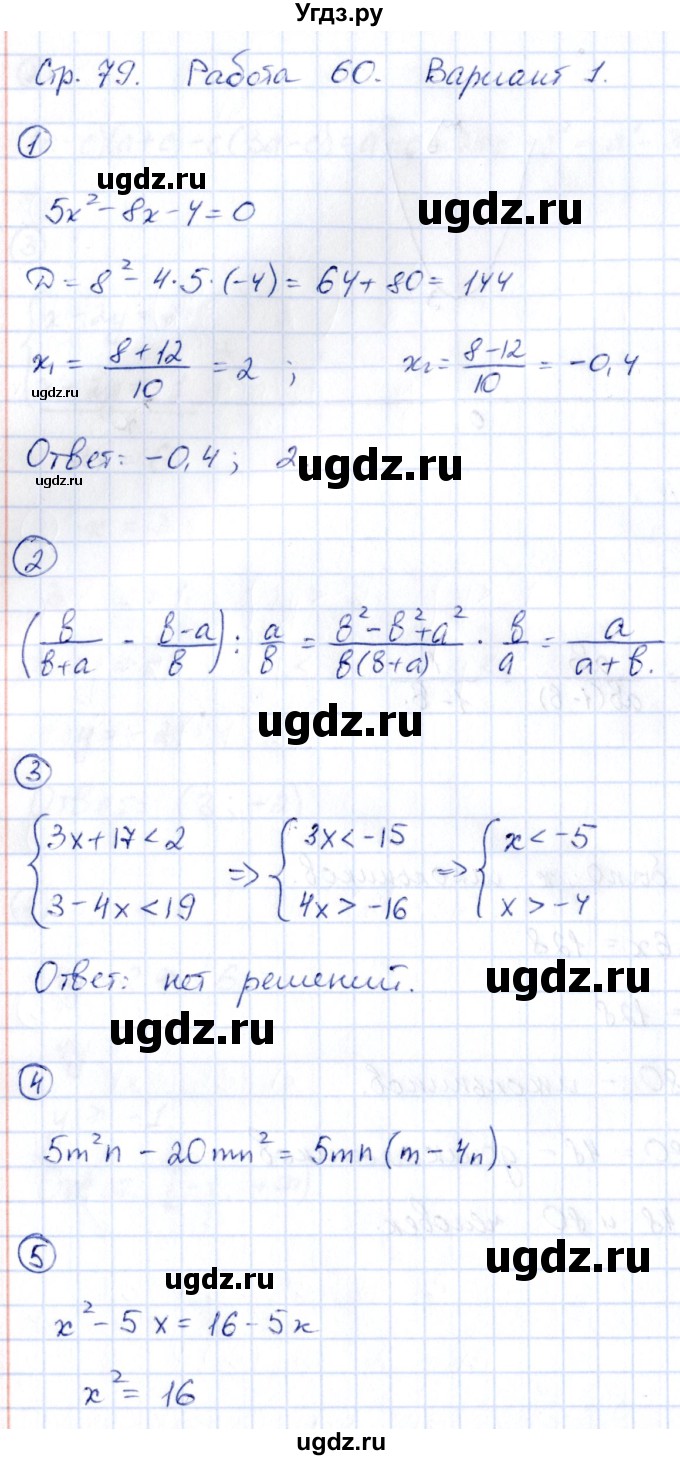 Угдз.ру
Стр. 79. Работа 60. Вариант 1.
1
ugdz.ru ugdz.ru
5x² - 8x - 4 = 0
D = 8² - 4·5·(-4) = 64 + 80 = 144
x₁ = (8+12)/10 = 2 ; x₂ = (8-12)/10 = -0,4
ugdz.ru
Ответ: -0,4; 2
ugdz.ru ugdz.ru
2
(в/(в+a) - (в-a)/в) : a/в = (в²-в²+a²)/(в(в+a)) · в/a = a/(a+в).
ugdz.ru
3
{3x+17<2 => {3x<-15 => {x<-5
{3-4x<19 {4x>-16 {x>-4
Ответ: нет решений.
ugdz.ru
ugdz.ru
4
5m²n - 20mn² = 5mn(m-4n).
5
ugdz.ru ugdz.ru
x² - 5x = 16 - 5x
x² = 16
ugdz.ru